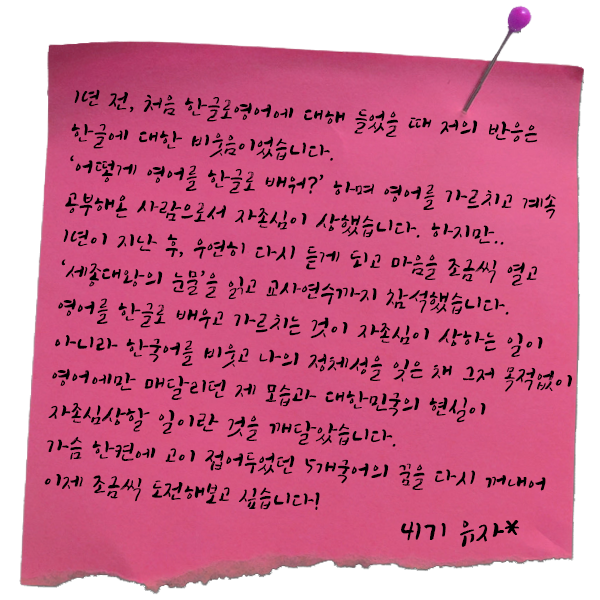 1년 전, 처음 한글로영어에 대해 들었을 때 저의 반응은
한글에 대한 비웃음이었습니다.
'어떻게 영어를 한글로 배워?' 하며 영어를 가르치고 계속
공부해온 사람으로서 자존심이 상했습니다. 하지만..
1년이 지난 후, 우연히 다시 듣게 되고 마음을 조금씩 열고
'세종대왕의 눈물'을 읽고 교사연수까지 참석했습니다.
영어를 한글로 배우고 가르치는 것이 자존심이 상하는 일이
아니라 한국어를 비웃고 나의 정체성을 잊은 채 그저 목적없이
영어에만 매달리던 제 모습과 대한민국의 현실이
자존심상할 일이란 것을 깨달았습니다.
가슴 한켠에 고이 접어두었던 5개국어의 꿈을 다시 꺼내어
이제 조금씩 도전해보고 싶습니다!
41기 유자*